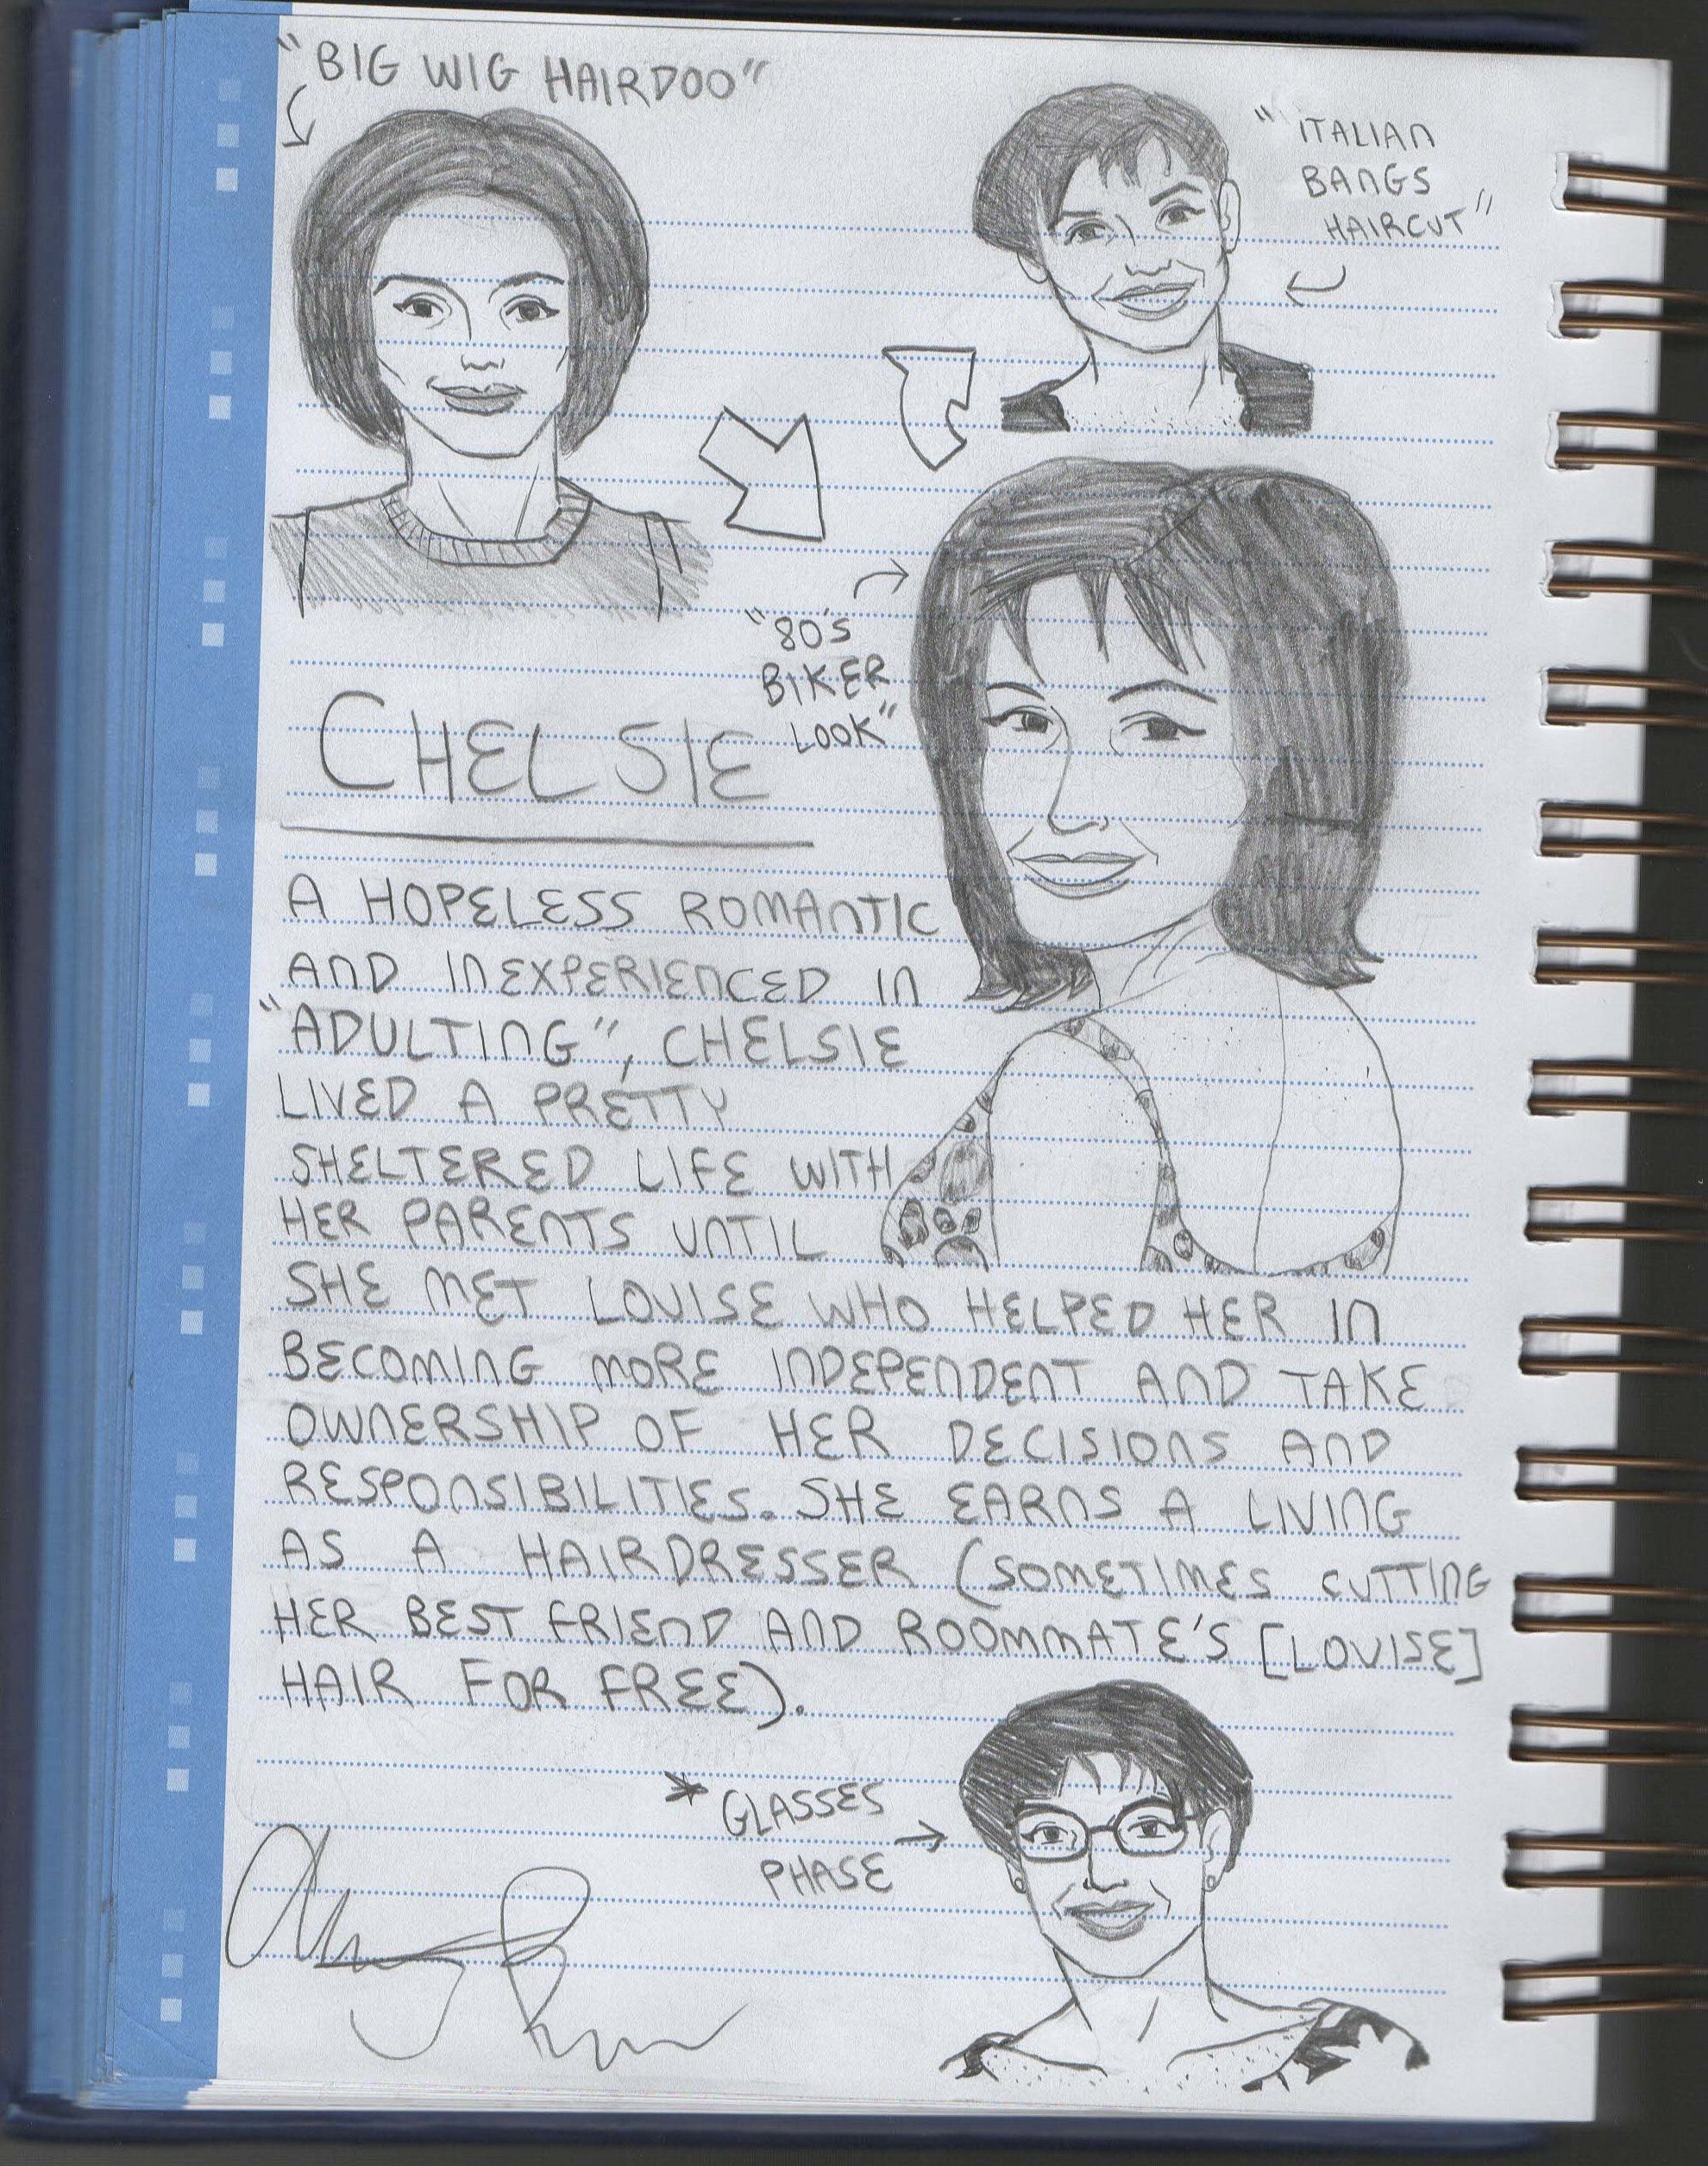 "BIG WIG HAIRDOO"
"ITALIAN
BANGS
HAIRCUT"
"80's
BIKER
LOOK"
CHELSIE
A HOPELESS ROMANTIC
AND INEXPERIENCED IN
"ADULTING", CHELSIE
LIVED A PRETTY
SHELTERED LIFE WITH
HER PARENTS UNTIL
SHE MET LOUISE WHO HELPED HER IN
BECOMING MORE INDEPENDENT AND TAKE
OWNERSHIP OF HER DECISIONS AND
RESPONSIBILITIES. SHE EARNS A LIVING
AS A HAIRDRESSER (SOMETIMES CUTTING
HER BEST FRIEND AND ROOMMATE'S [LOUISE]
HAIR FOR FREE).
* GLASSES
PHASE